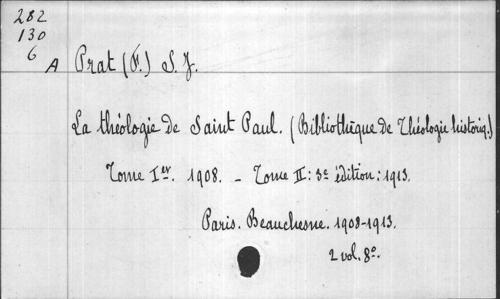 282
130
6
A Prat (F.) S.J.
La théologie de Saint Paul. (Bibliothèque de Théologie historiq.)
Tome Ier. 1908. – Tome II: 3e édition: 1913.
Paris. Beauchesne. 1908-1913.
2 vol. 8°.